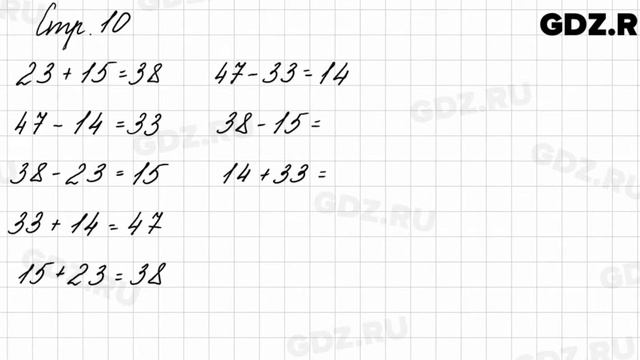 Стр. 10
GDZ.R
23 + 15 = 38
47 - 33 = 14
47 - 14 = 33
38 - 15 =
38 - 23 = 15
14 + 33 =
33 + 14 = 47
15 + 23 = 38
GDZ.RU
GDZ.RU
GDZ.RU
GDZ.RU
GDZ.RU
GDZ.RU